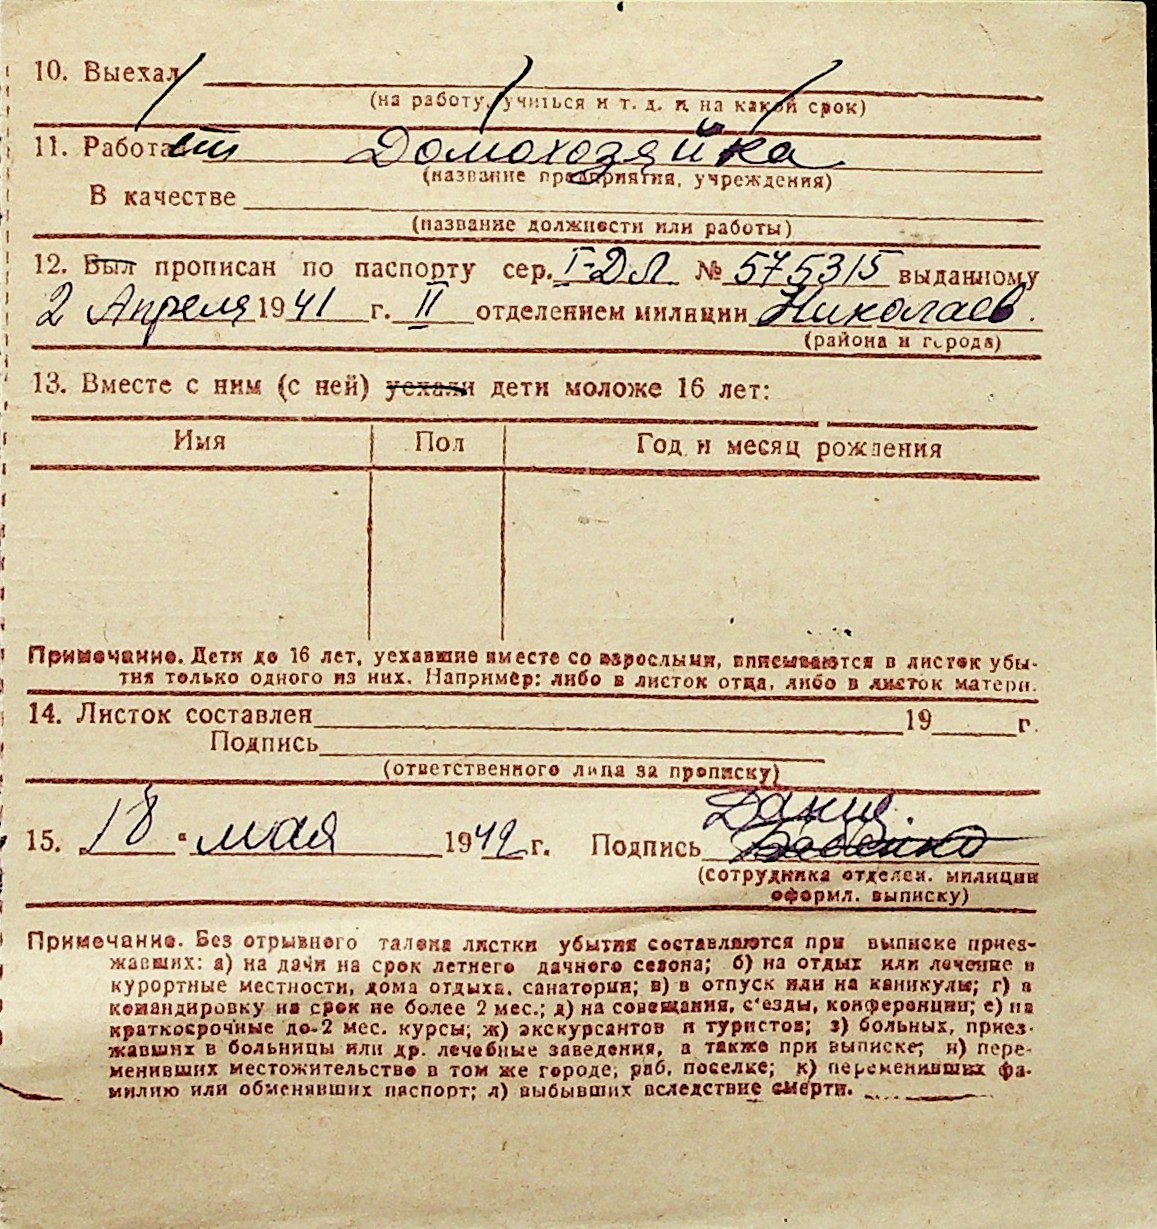 10. Выехал
(на работу, учиться и т. д. и на какой срок)
11. Работает Домохозяйка
(название предприятия, учреждения)
В качестве
(название должности или работы)
12. Был прописан по паспорту сер. I-ДЛ № 575315 выданному
2 Апреля 1941 г. II отделением милиции Николаев.
(района и города)
13. Вместе с ним (с ней) уехали дети моложе 16 лет:
Имя Пол Год и месяц рождения
Примечание. Дети до 16 лет, уехавшие вместе со взрослыми, вписываются в листок убы-
тия только одного из них. Например: либо в листок отца, либо в листок матери.
14. Листок составлен 19 г.
Подпись
(ответственного лица за прописку)
15. 18 " мая 1942 г. Подпись
(сотрудника отделен. милиции
оформл. выписку)
Примечание. Без отрывного талона листки убытия составляются при выписке приез-
жавших: а) на дачи на срок летнего дачного сезона; б) на отдых или лечение в
курортные местности, дома отдыха, санатории; в) в отпуск или на каникулы; г) в
командировку на срок не более 2 мес.; д) на совещания, с'езды, конференции; е) на
краткосрочные до-2 мес. курсы; ж) экскурсантов и туристов; з) больных, приез-
жавших в больницы или др. лечебные заведения, а также при выписке; и) пере-
менивших местожительство в том же городе, раб. поселке; к) переменивших фа-
милию или обменявших паспорт; л) выбывших вследствие смерти.